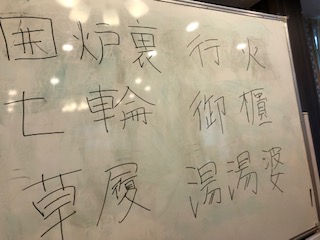 囲炉裏 行火
七輪 御櫃
草履 湯湯婆